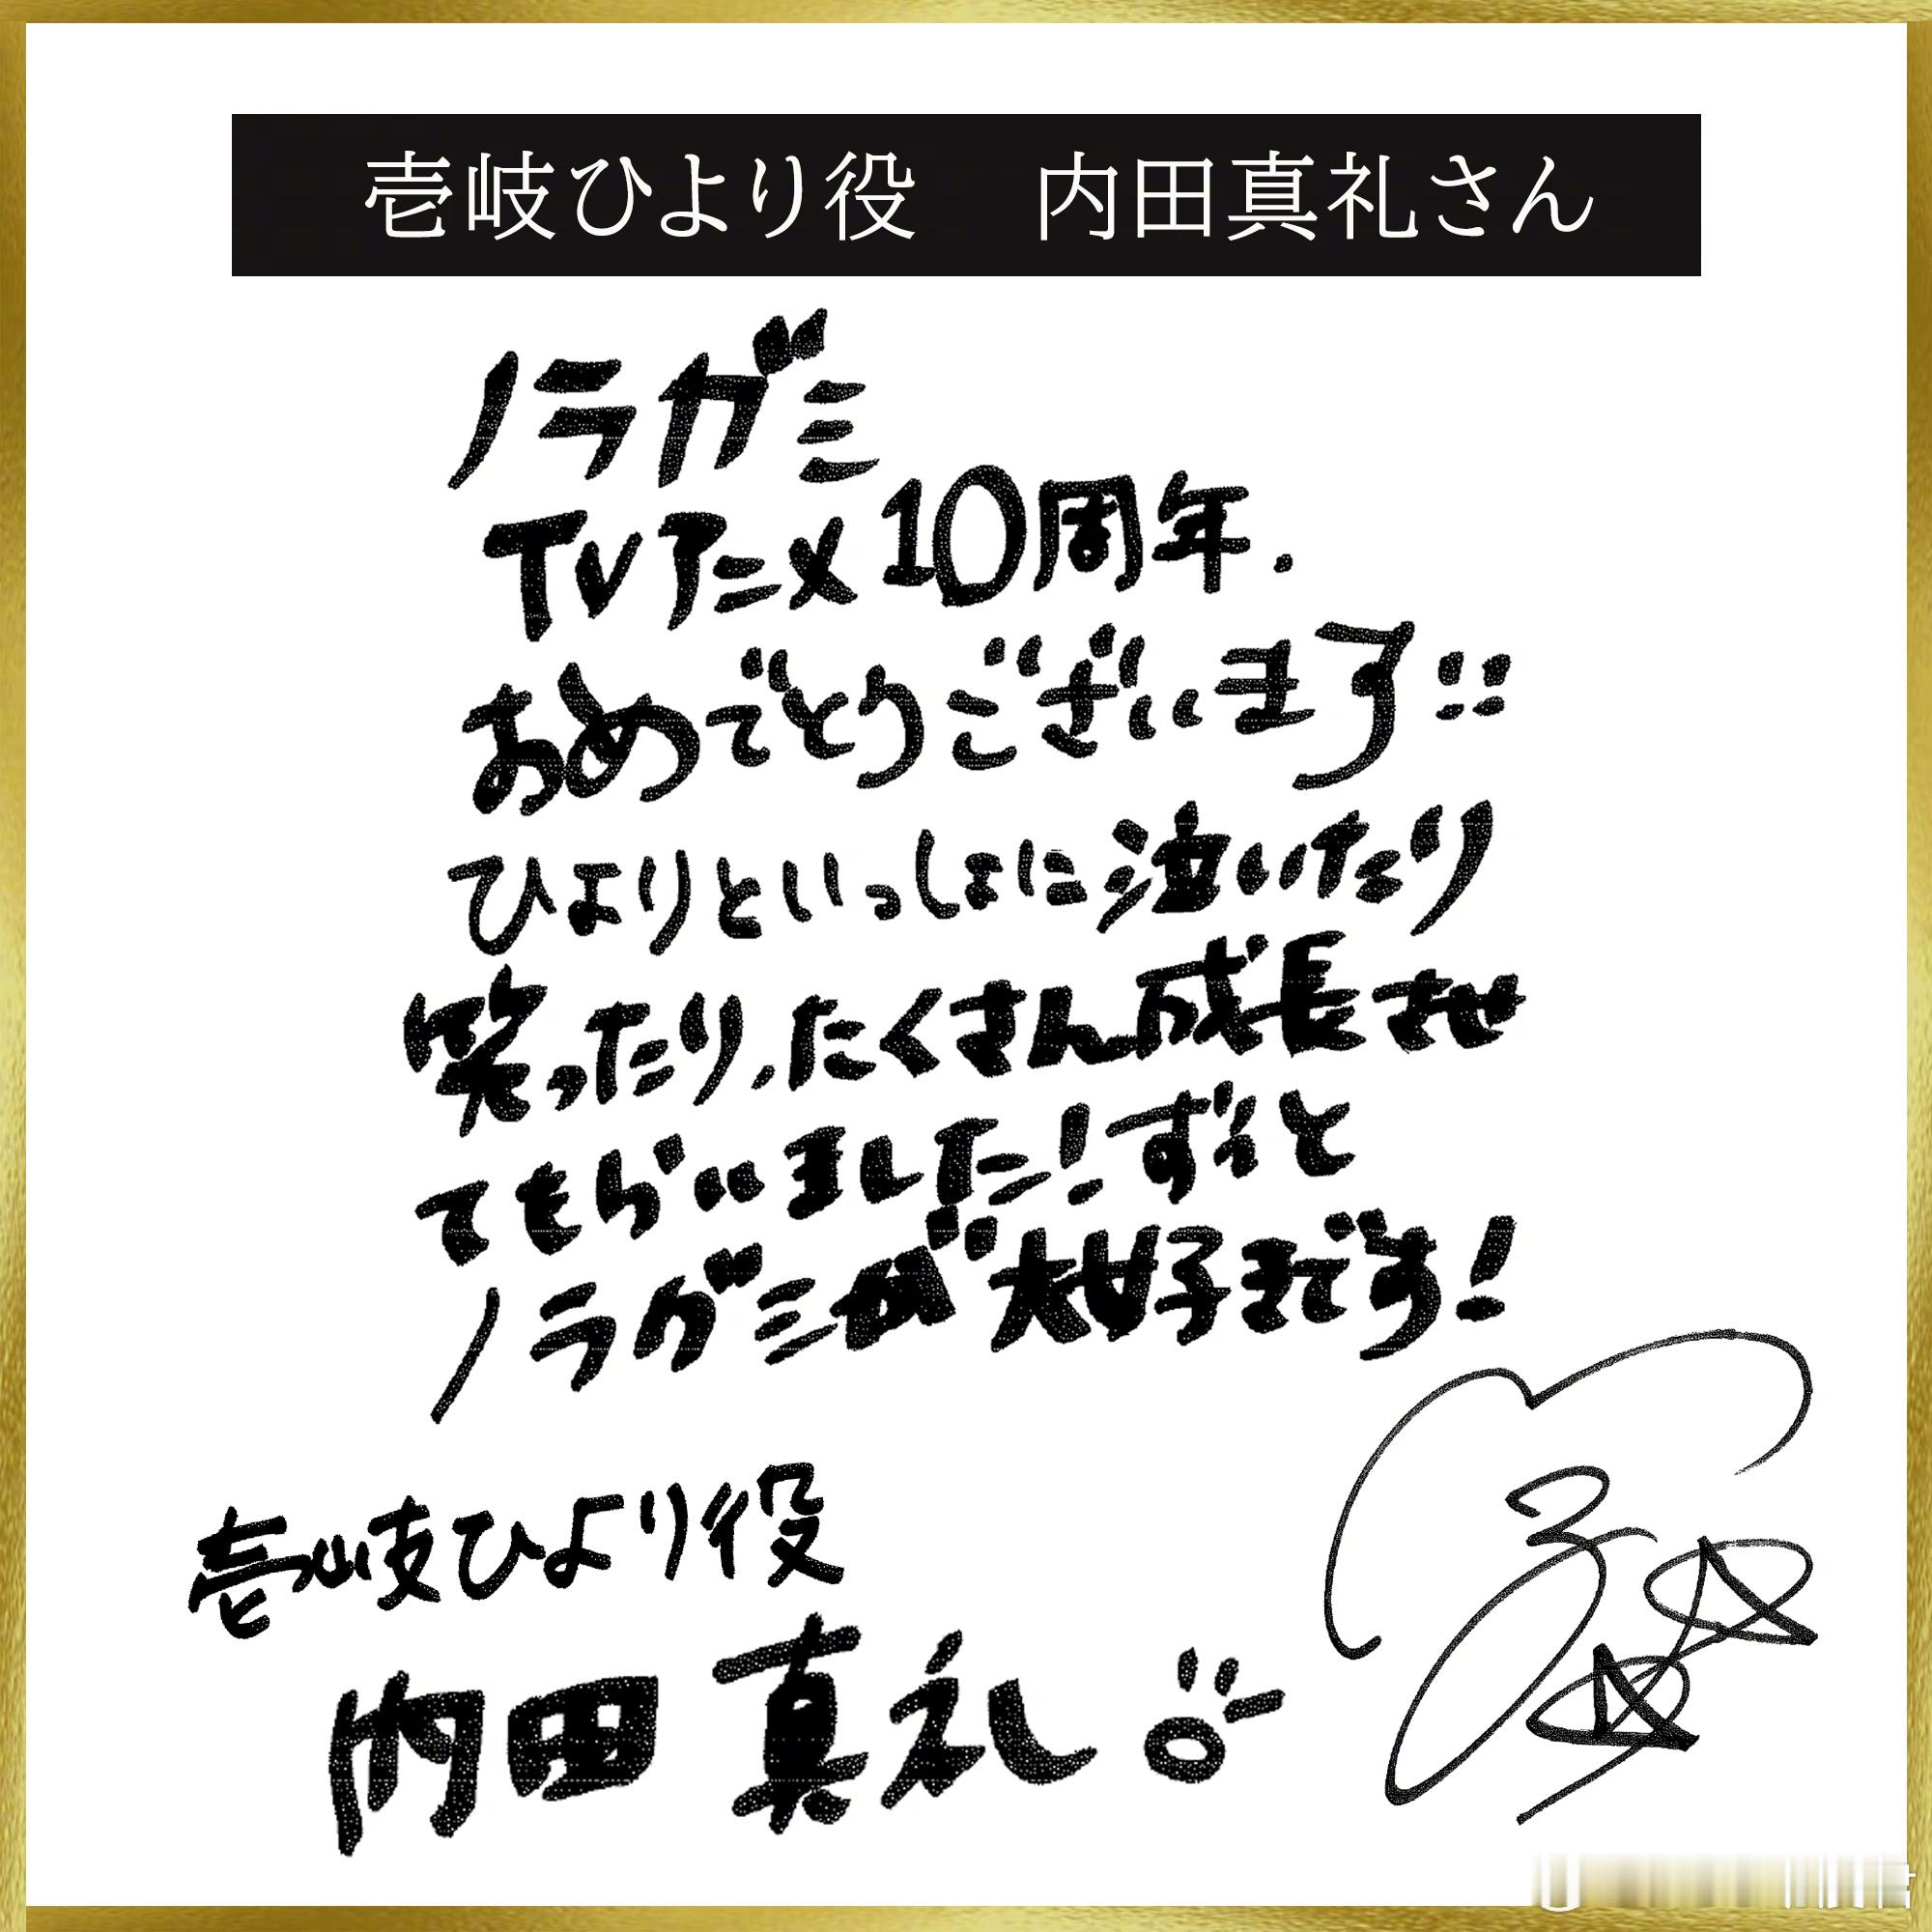 壱岐ひより役　内田真礼さん
ノラガミ
TVアニメ10周年.
おめでとうございます!!
ひよりといっしょに泣いたり
笑ったり、たくさん成長させ
てもらいました!ずっと
ノラガミが大好きです!
壱岐ひより役
内田真礼